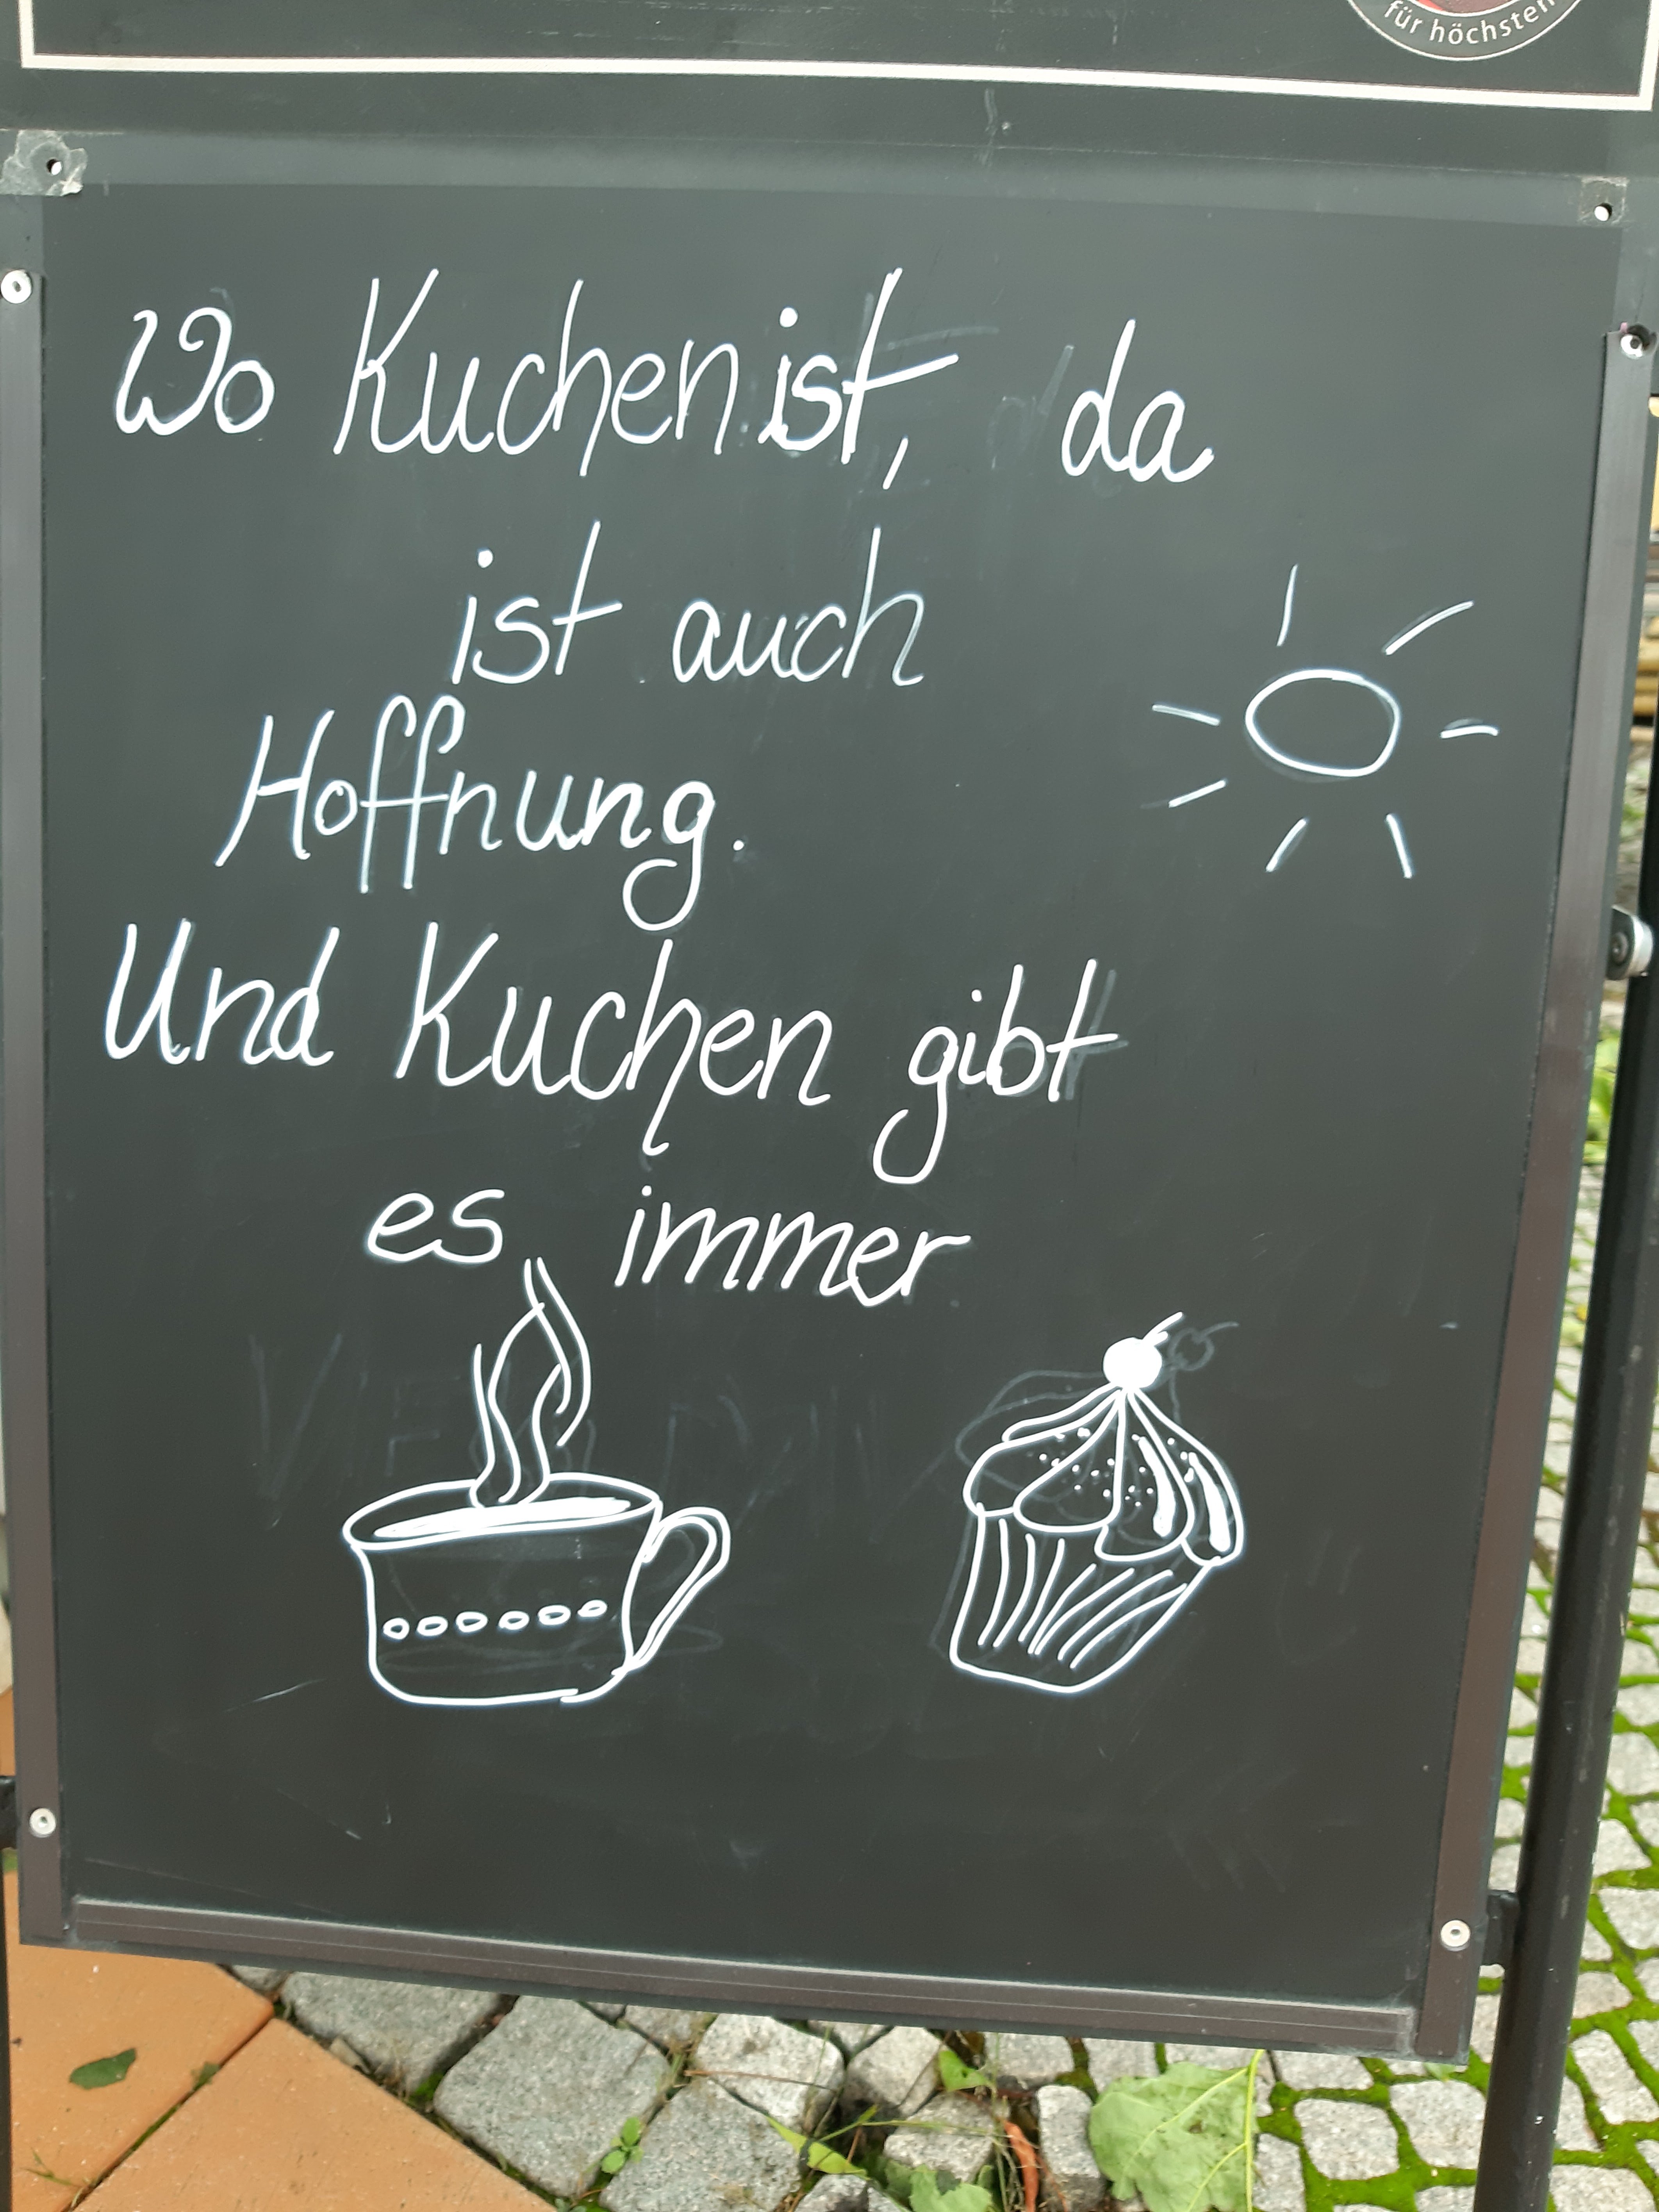 für höchsten
Wo Kuchen ist, da
ist auch
Hoffnung.
Und Kuchen gibt
es immer